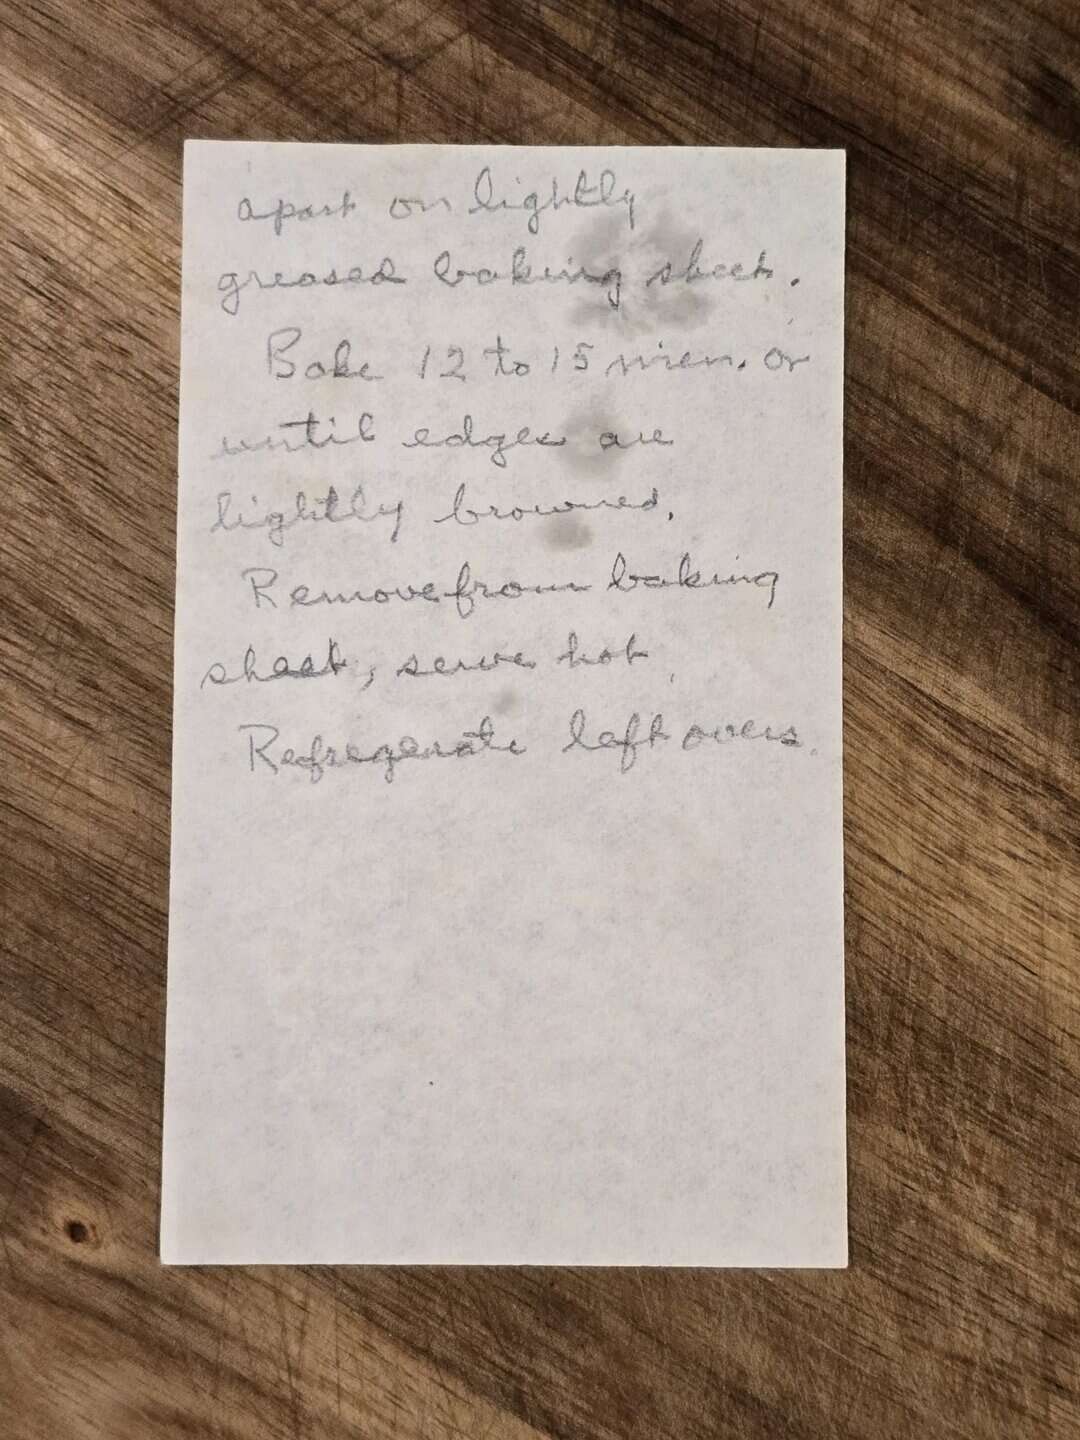 apart on lightly
greased baking sheet.
Bake 12 to 15 min. or
until edges are
lightly browned.
Remove from baking
sheet, serve hot.
Refregerate left overs.